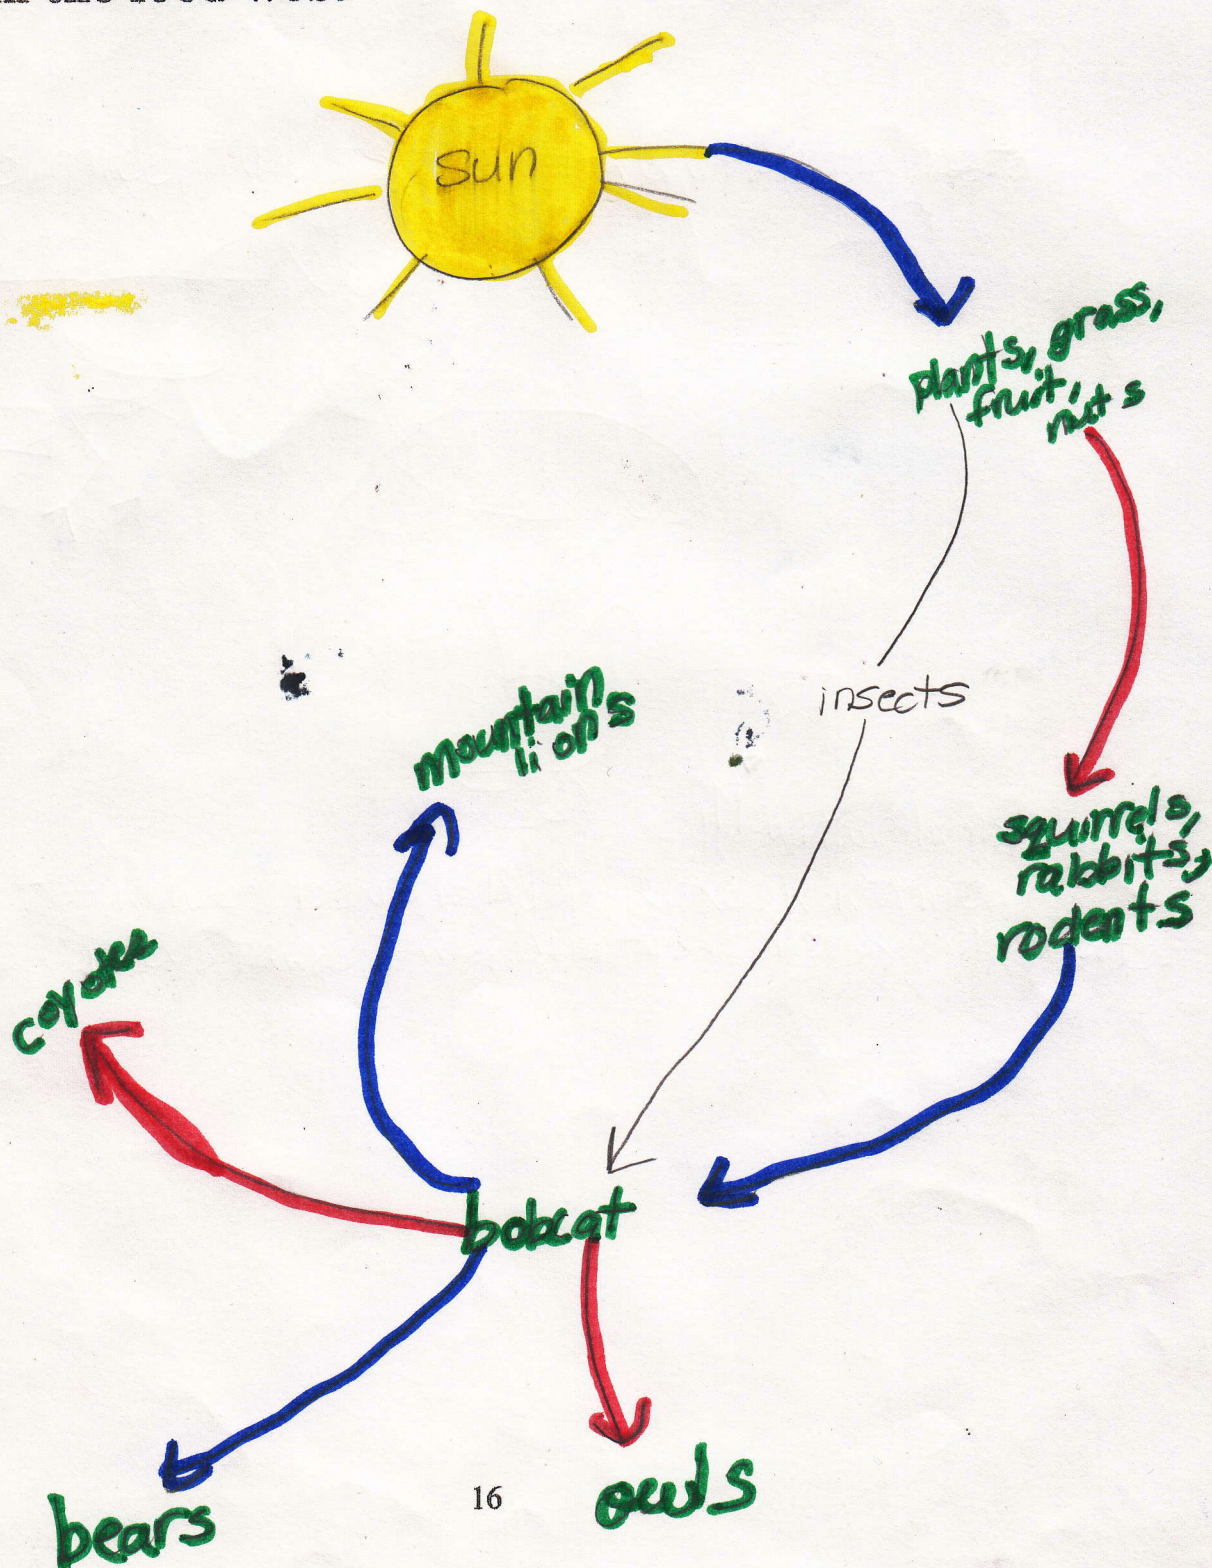 sun
plants, grass,
fruit,
nuts
insects
mountain
lions
squirrels,
rabbits,
rodents
coyotes
bobcat
owls
bears
16